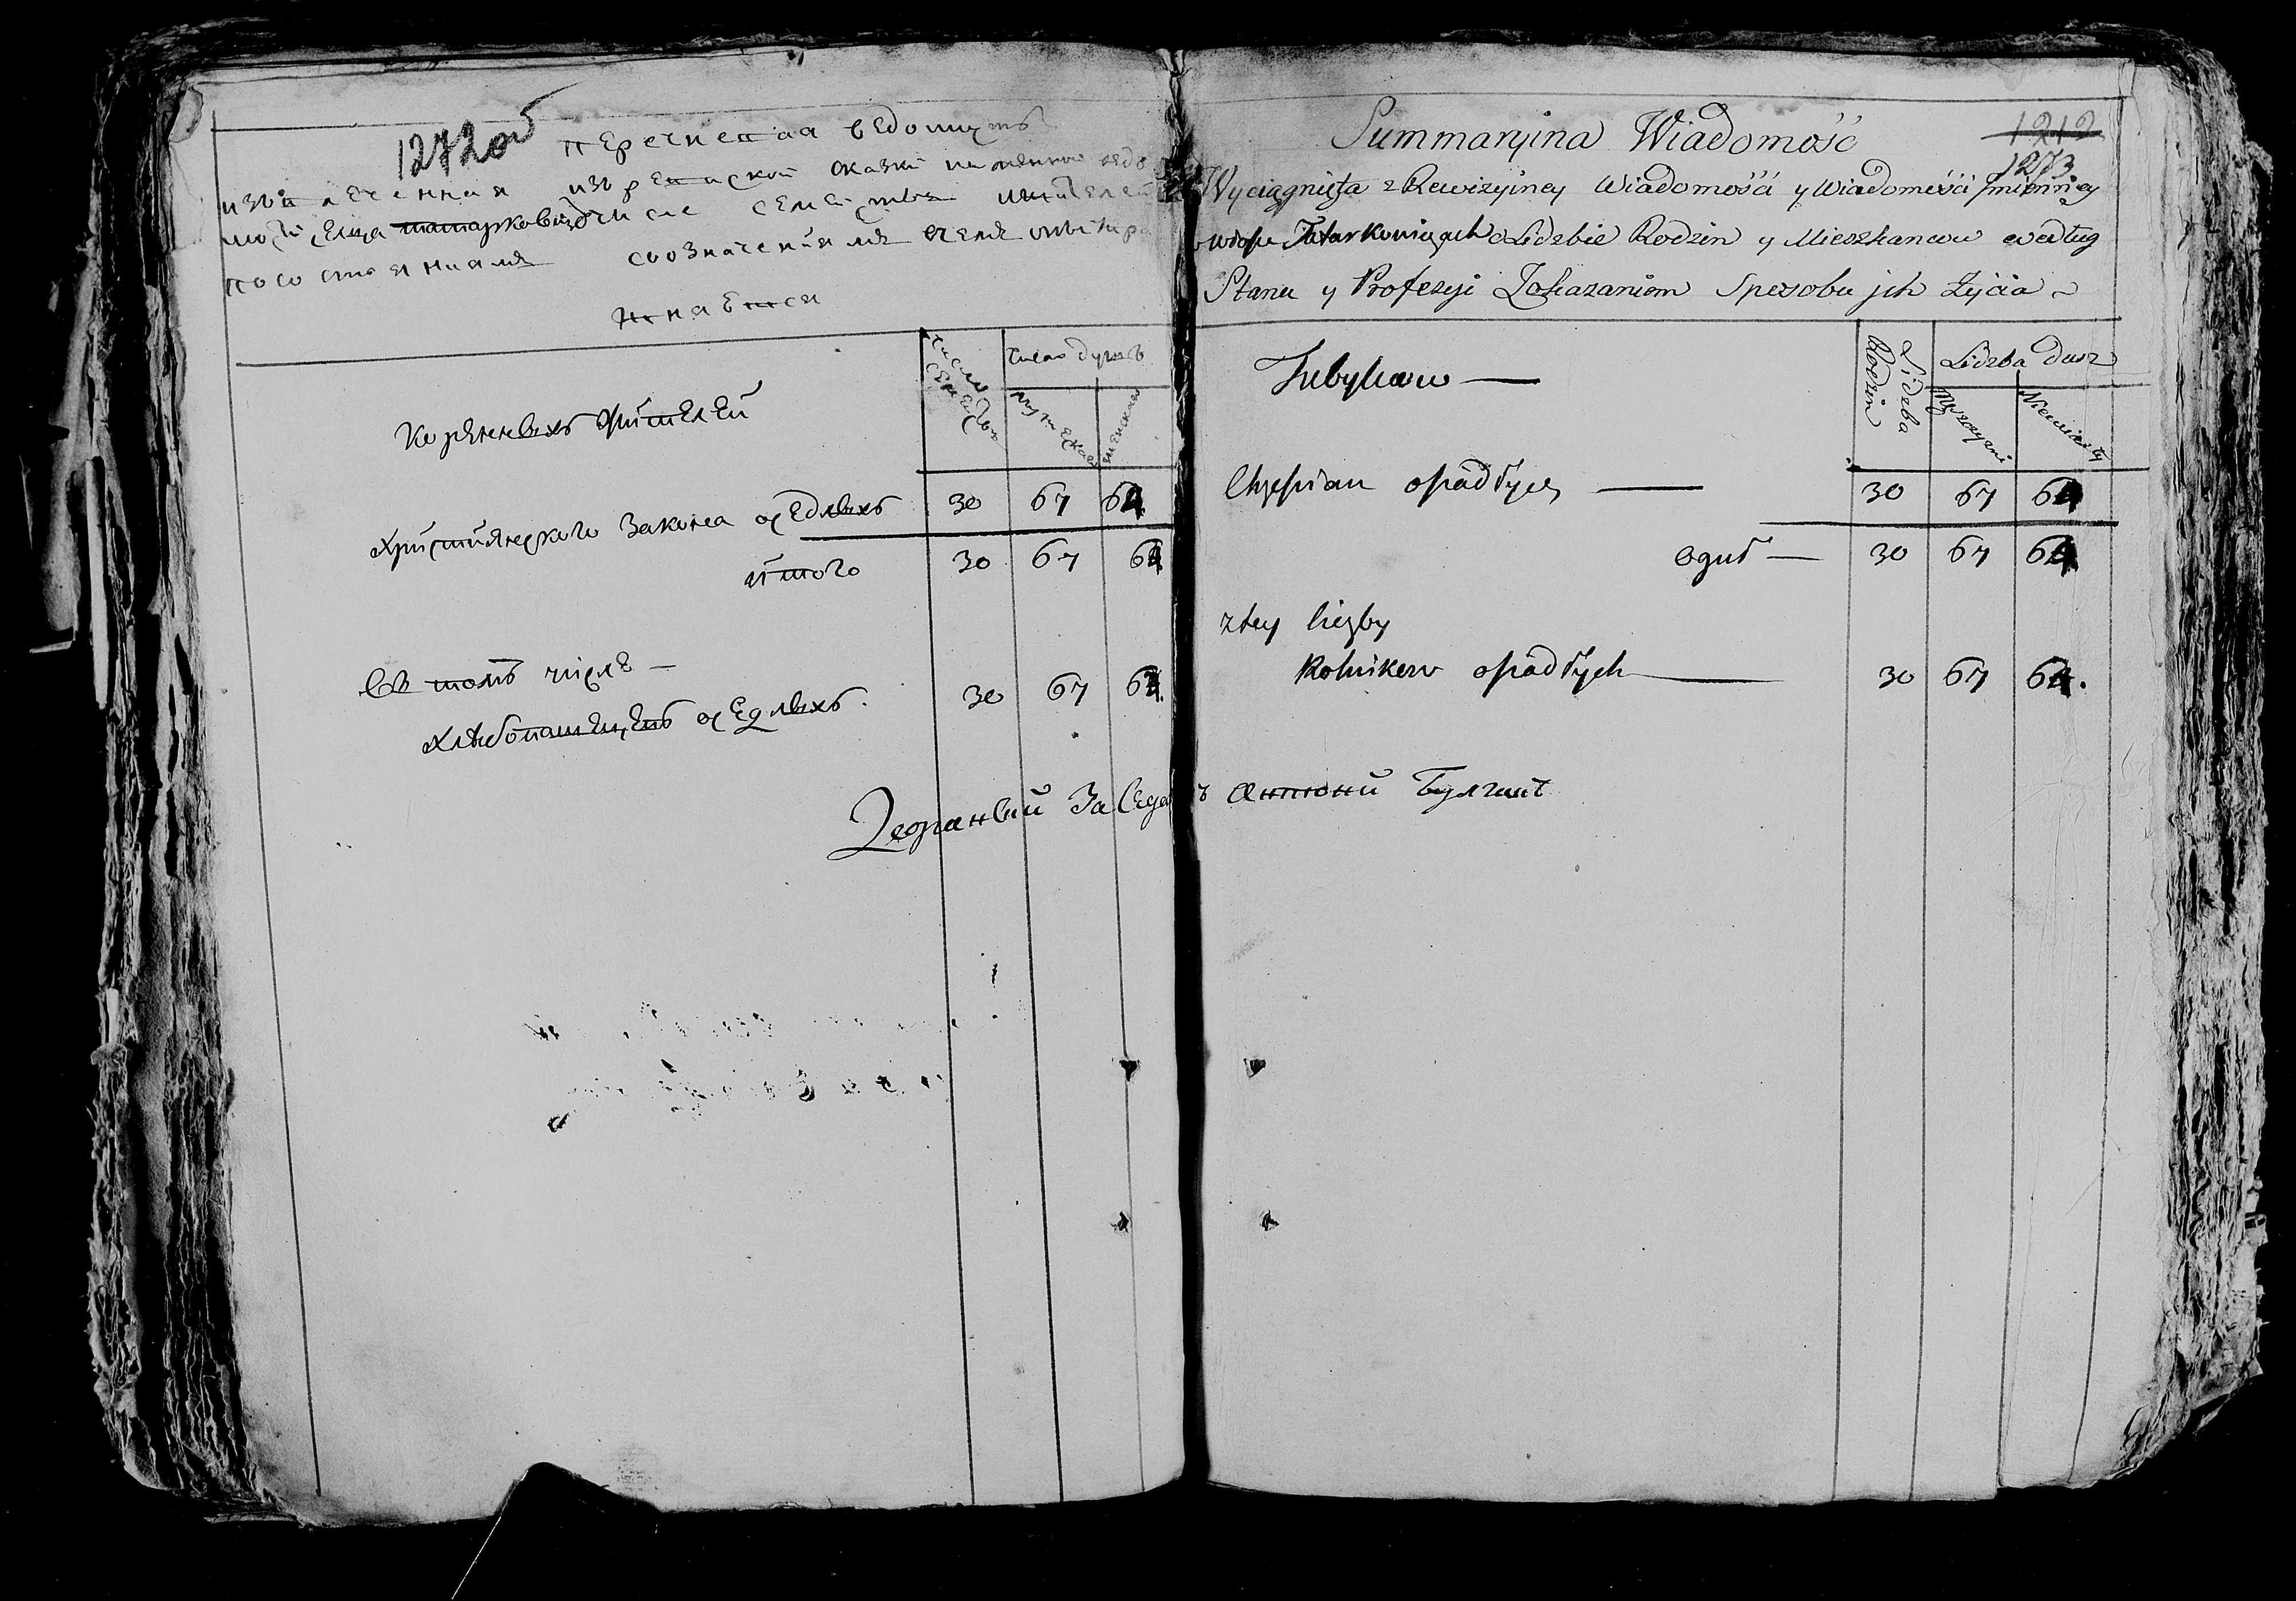 1272об
перечневая ведомость
извлеченная изъ ревиской сказки именной ведо
мости села татарковицъ числе семействъ жителей
по состояниямъ соозначениемъ чемъ
Коренныхъ жителей
число семействъ
число душъ
мужеска
женска
христианского закона оседлыхъ 30 67 64
итого 30 67 64
Въ томъ числе —
хлебопашцевъ оседлыхъ. 30 67 64.
Дворяный Заседа ъ Антоний Булгинъ
1212
1273
Summaryina Wiadomość
Wyciągnięta z Rewizyiney Wiadomości y Wiadomości Jmienney
o wsi Tatarkowicach o Lidzbie Rodzin y Mieszkancow według
Stanu y Profesyi Zokazaniem Sposobu jch życia
Tubylcow —
Lidzba Rodzin
Lidzba Dusz
Męszczyzni
Niewiasty
Chrześcian osiadłych — 30 67 64
oguł — 30 67 64
z tey liczby
Rolnikow osiadłych — 30 67 64.